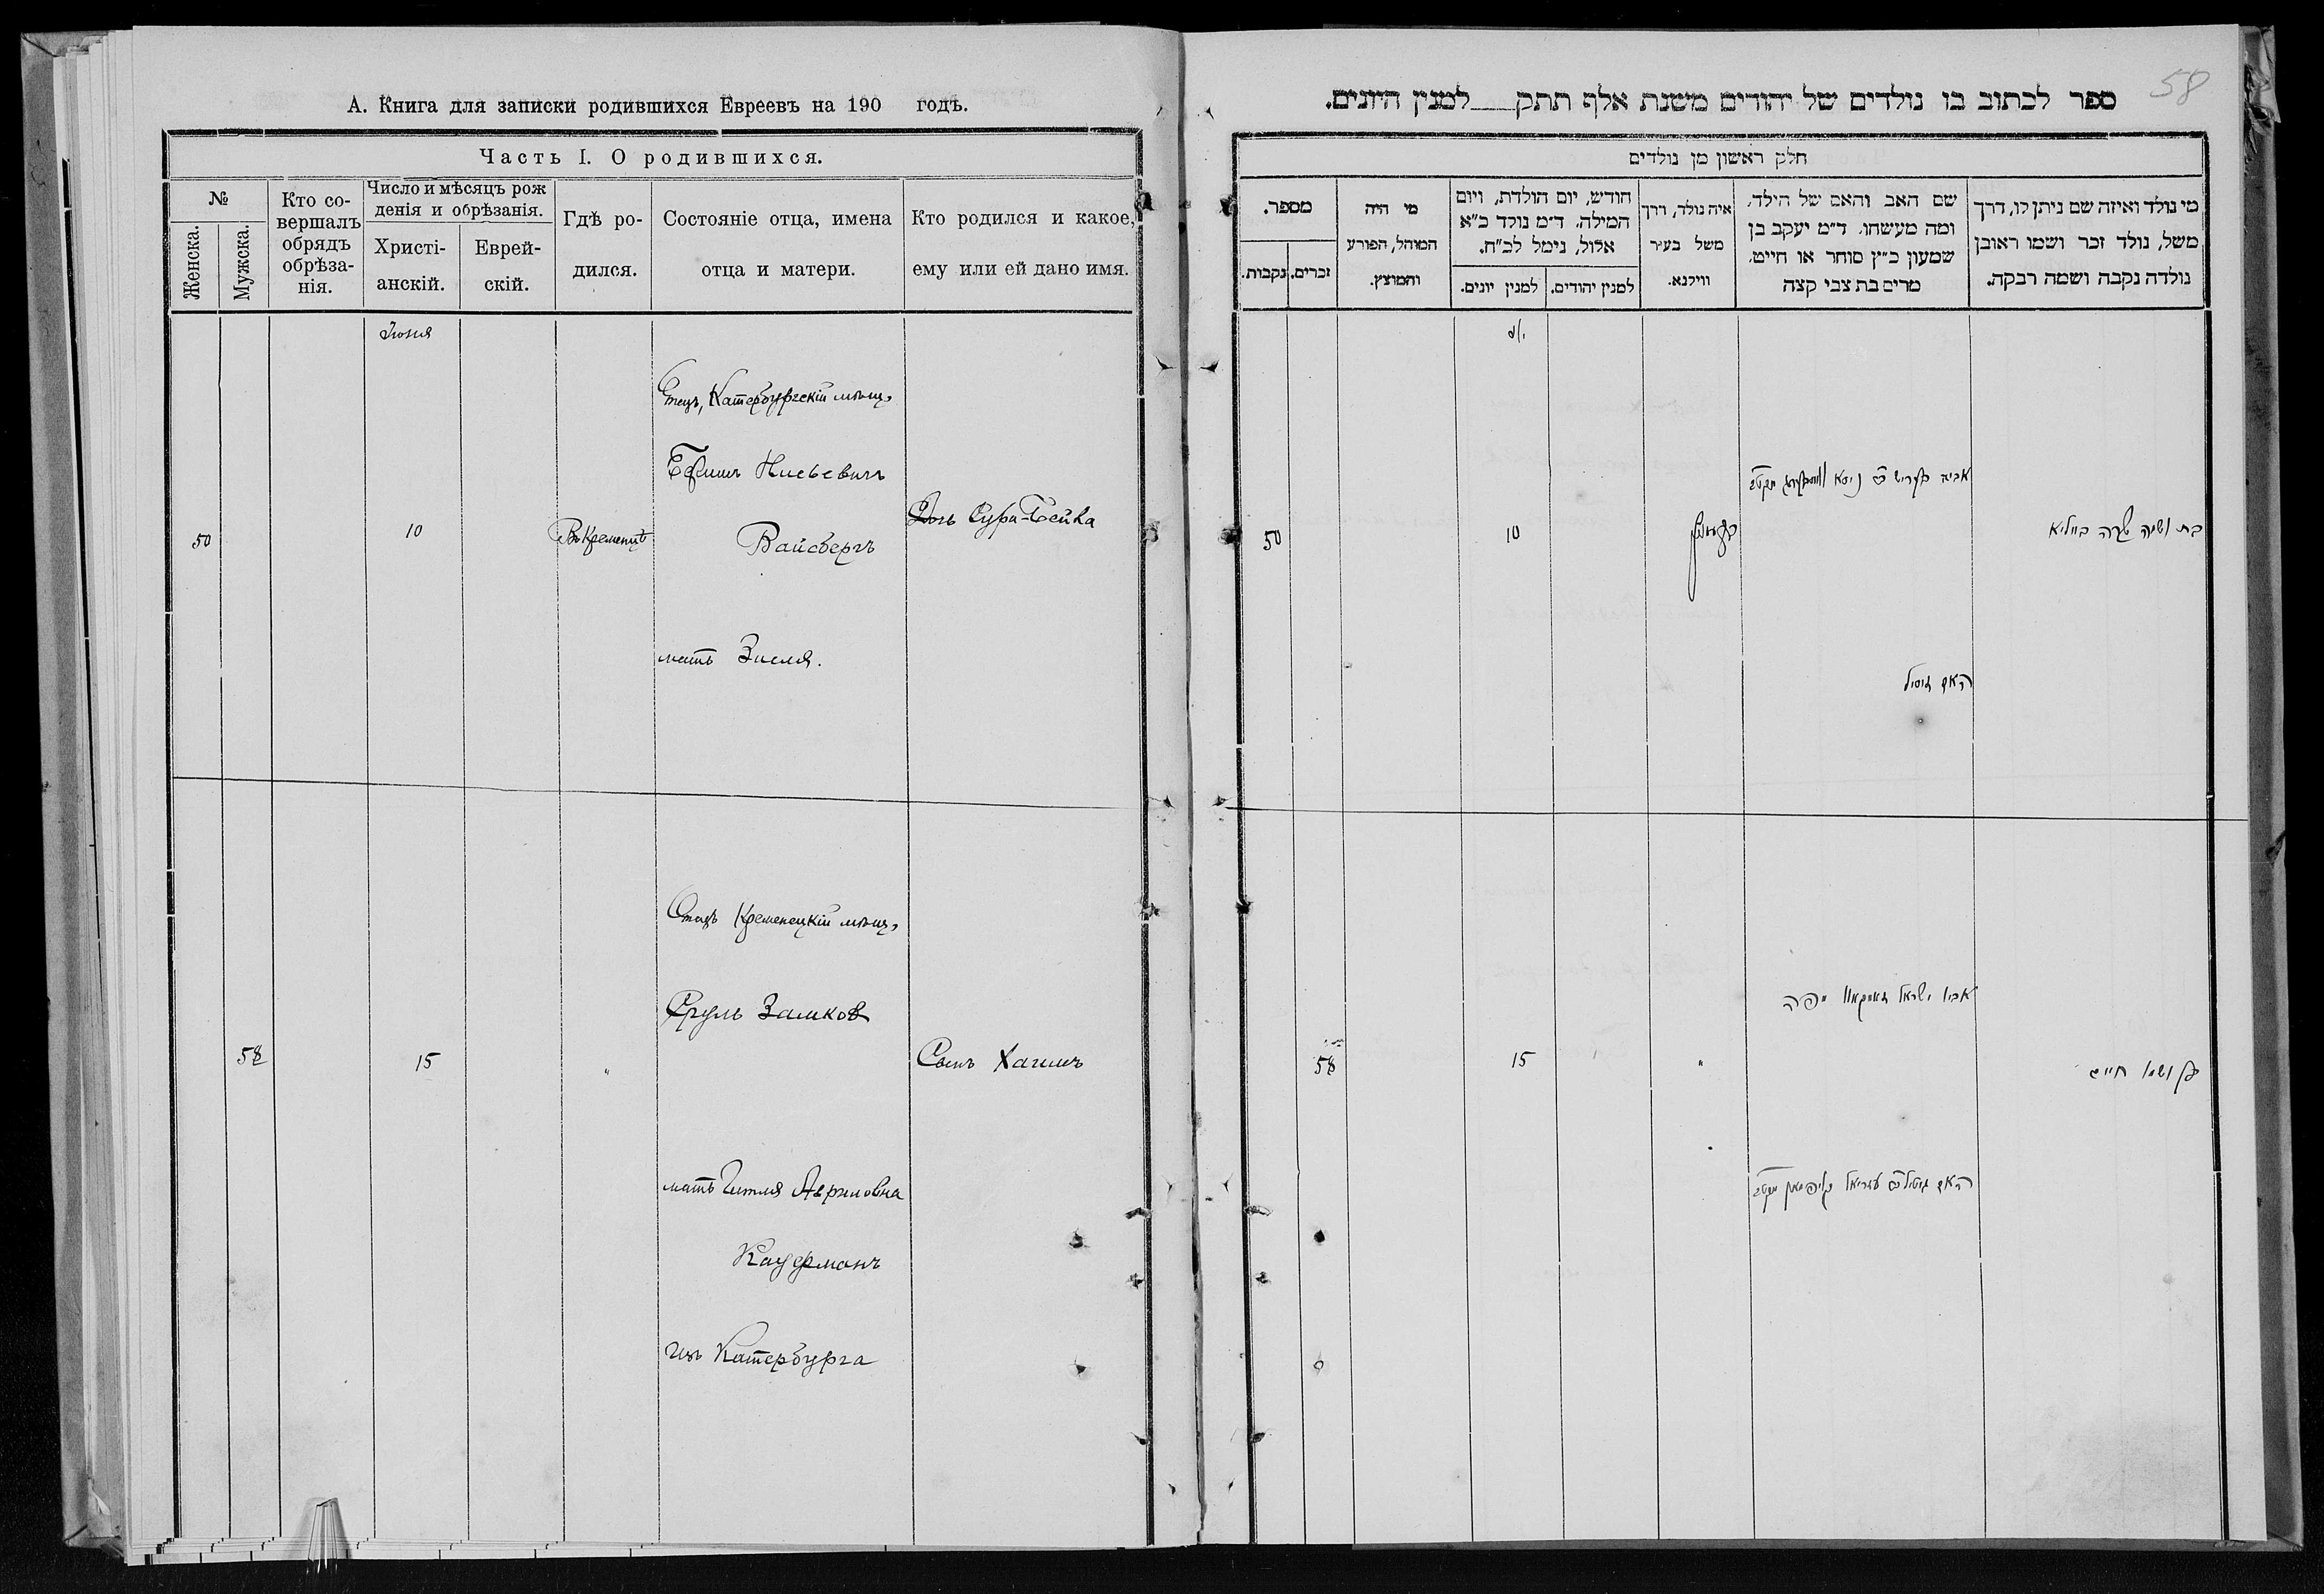 А. Книга для записки родившихся Евреевъ на 190 годъ.
Часть I. О родившихся.
№
Женска.
Мужска.
Кто со-
вершалъ
обрядъ
обрѣза-
нія.
Число и мѣсяцъ рож
денія и обрѣзанія.
Христі-
анскій.
Еврей-
скій.
Гдѣ ро-
дился.
Состояніе отца, имена
отца и матери.
Кто родился и какое,
ему или ей дано имя.
Іюня
50
10
Въ Кременцѣ
Отецъ, Катербургскій мѣщ.
Вайсбергъ
мать Зисля.
Дочь Сура-Бейла
58
15
"
Отецъ Кременецкій мѣщ.
Сруль Замков
мать Гитля
из Катербурга
Сынъ Хаимъ
58
ספר לכתוב בו נולדים של יהודים משנת אלף תתק למנין היונים.
חלק ראשון מן נולדים
מספר.
נקבות.
זכרים.
מי היה
המוהל, הפורע
והמוצץ.
חודש, יום הולדת, ויום
המילה. ד״מ נולד כ״א
אלול, נימל לכ״ח.
למנין יונים.
למנין יהודים.
איה נולד, דרך
משל בעיר
ווילנא.
שם האב והאם של הילד,
ומה מעשהו. ד״מ יעקב בן
שמעון כ״ץ סוחר או חייט,
מרים בת צבי קצה
מי נולד ואיזה שם ניתן לו, דרך
משל, נולד זכר ושמו ראובן
נולדה נקבה ושמה רבקה.
50
10
בת ושמה שרה ביילא
האם זיסיל
אביו ישראל
58
15
"
בן ושמו חיים